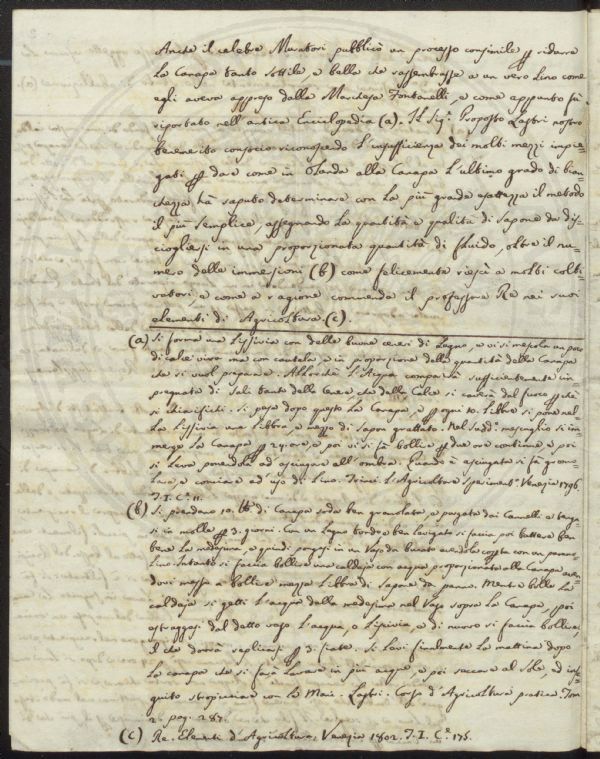 Anche il celebre Muratori pubblicò un processo consimile p ridurre
la Canapa tanto sottile, e bella che rassembrasse a un vero Lino come
egli aveva appreso dalla Marchesa Fontanelli, e come appunto fù
riportato nell'antica Enciclopedia (a). Il Sig. Proposto Lastri nostro
benemerito consocio riconoscendo l'insufficienza dei molti mezzi impie-
gati p dare come in Olanda alla Canapa l'ultimo grado di bian-
chezza, hà saputo determinare con la più grande esattezza il metodo
il più semplice, assegnando la quantità e qualità di sapone da dis-
ciogliersi in una proporzionata quantità di fluido, oltre il nu-
mero delle immersioni (b) come felicemente riescì a molti colti-
vatori, e come a ragione commenda il professore Re nei suoi
elementi di Agricoltura. (c).
(a) Si forma una Lissivia con della buona cenere di Legno, e vi si mescola un poco
di calce viva ma con cautela, e in proporzione della quantità della Canapa
che si vuol preparare. Allorchè l'Acqua comparirà sufficientemente im-
pregnata di Sali tanto della Cenere che della Calce si caverà dal fuoco p chè
si chiarifichi. Si pesa dopo questo la Canapa, e p ogni 10. Libbre si pone nel
la Lissivia una Libbra, e mezzo di Sapone grattato. Nel sudd. mescuglio si im-
merge la Canapa p 24. ore, e poi vi si fà bollire p due ore continue e poi
si leva ponendola ad asciugare all'ombra. Quando è asciugata si fà gramo-
lare, e conciare ad uso di Lino. Trinci L'Agricoltore Speriment. Venezia 1796.
T. I. C. 11.
(b) Si prendano 10. lb di Canapa soda ben gramolata, e purgata dai Cannelli e tenga-
si in molle p 3. giorni. Con un Legno tondo e ben levigato si faccia poi battere ben
bene la medesima, e quindi pongasi in un Vaso da bucato avendola coperta con un panno
Lino. Intanto si faccia bollire una caldaja con acqua proporzionata alla Canapa aven-
dovi messa a bollire mezza Libbra di Sapone da panni. Mentre bolle la
caldaja si getti l'acqua della medesima nel Vaso sopra la Canapa, poi
estraggasi dal detto vaso l'acqua, o Lissivia, e di nuovo si faccia bollire,
il che dovrà replicarsi p 3. fiate. Si lavi finalmente la mattina dopo
la canapa che si farà lavare in più acque, e poi seccare al Sole, ed in se-
guito stropicciare con le Mani. Lastri. Corso d'Agricoltura pratica. Tom.
2. pag. 287.
(c) Re. Elementi d'Agricoltura, Venezia 1802. T. I. C. 175.